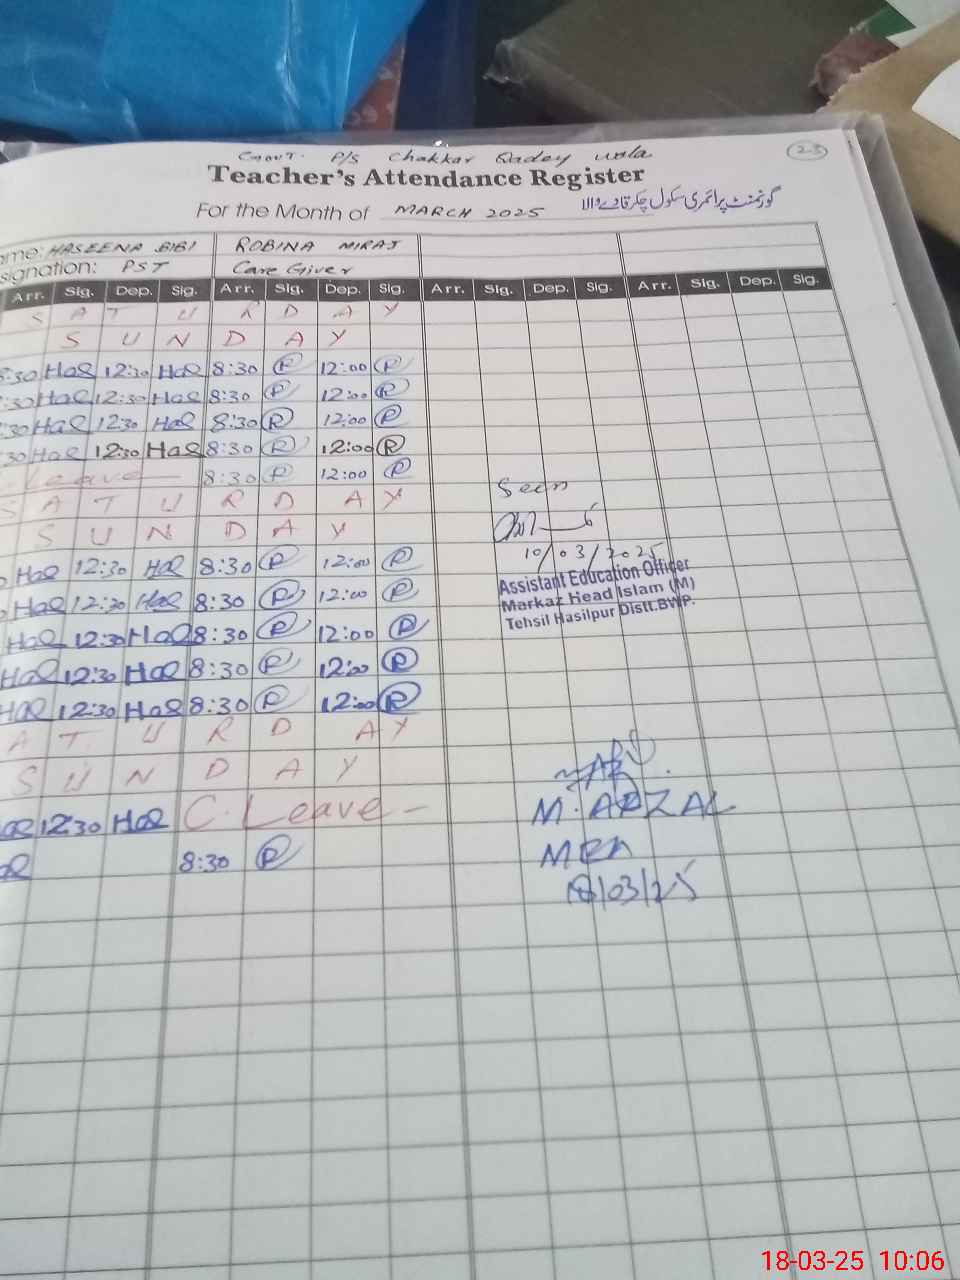 Govt. P/S Chakkar Qadey wala
23
Teacher's Attendance Register
For the Month of MARCH 2025 گورنمنٹ پرائمری سکول چکر قادے والا
ame: HASEENA BIBI ROBINA MIRAJ
signation: PST Care Giver
Arr. Sig. Dep. Sig. Arr. Sig. Dep. Sig. Arr. Sig. Dep. Sig. Arr. Sig. Dep. Sig.
S A T U R D A Y
S U N D A Y
8:30 Has 12:30 Has 8:30 R 12:00 R
:30 Has 12:30 Has 8:30 R 12:00 R
:30 Has 12:30 Has 8:30 R 12:00 R
30 Has 12:30 Has 8:30 R 12:00 R
Leave 8:30 R 12:00 R
S A T U R D A Y
S U N D A Y
Has 12:30 Has 8:30 R 12:00 R
Has 12:30 Has 8:30 R 12:00 R
Has 12:30 Has 8:30 R 12:00 R
Has 12:30 Has 8:30 R 12:00 R
Has 12:30 Has 8:30 R 12:00 R
A T U R D A Y
S U N D A Y
as 12:30 Has C. Leave
as 8:30 R
Seen
10/03/2025
Assistant Education Officer
Markaz Head Islam (M)
Tehsil Hasilpur Distt.BWP.
M. AFZAL
MEA
18/03/25
18-03-25 10:06